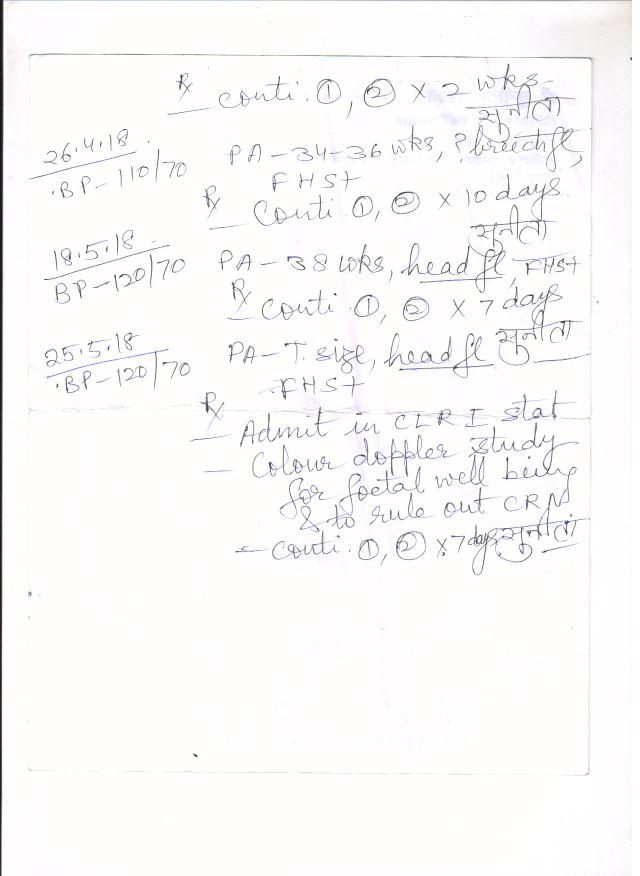 Rx conti. ①, ② × 2 wks
सुनीता
26.4.18
BP- 110/70
PA-34-36 wks, ? breech fl,
FHS+
Rx Conti. ①, ② × 10 days.
सुनीता
18.5.18
BP-120/70
PA-38 wks, head fl, FHS+
Rx conti ①, ② × 7 days
सुनीता
25.5.18
BP-120/70
PA-T. size, head fl
FHS+
Rx
- Admit in CLR I stat
- Colour doppler study
for foetal well being
& to rule out CRN
- conti. ①, ② × 7 days सुनीता